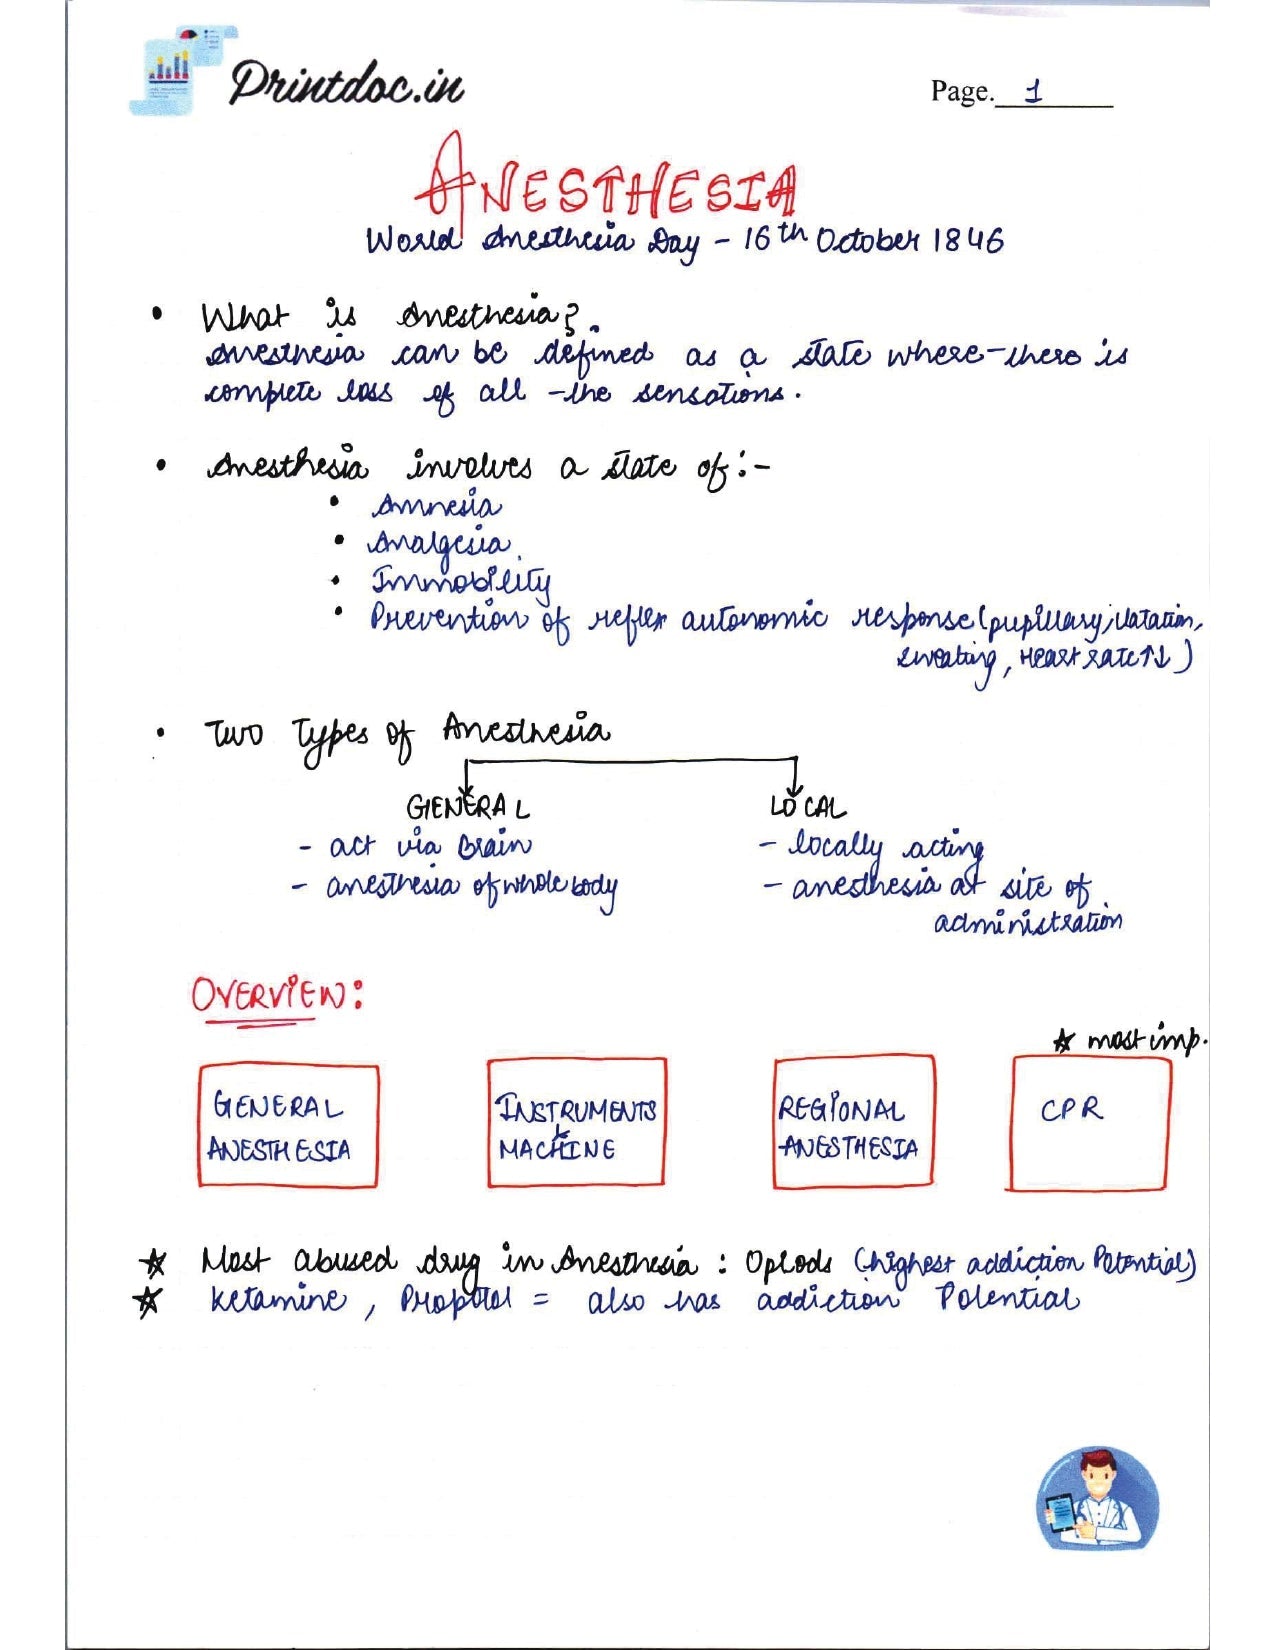 Printdoc.in
Page. 1
ANESTHESIA
World Anesthesia Day - 16th October 1846
• What is Anesthesia?
Anesthesia can be defined as a state where there is
complete loss of all the sensations.
• Anesthesia involves a state of:-
• Amnesia
• Analgesia
• Immobility
• Prevention of reflex autonomic response (pupillary dilatation,
sweating, Heart rate ↑↓)
• Two Types of Anesthesia
GENERAL LOCAL
- act via Brain - locally acting
- anesthesia of whole body - anesthesia at site of
administration
OVERVIEW:
★ most imp.
GENERAL INSTRUMENTS REGIONAL CPR
&
ANESTHESIA MACHINE ANESTHESIA
★ Most abused drug in Anesthesia : Opiods (highest addiction Potential)
★ Ketamine, Propofol = also has addiction Potential